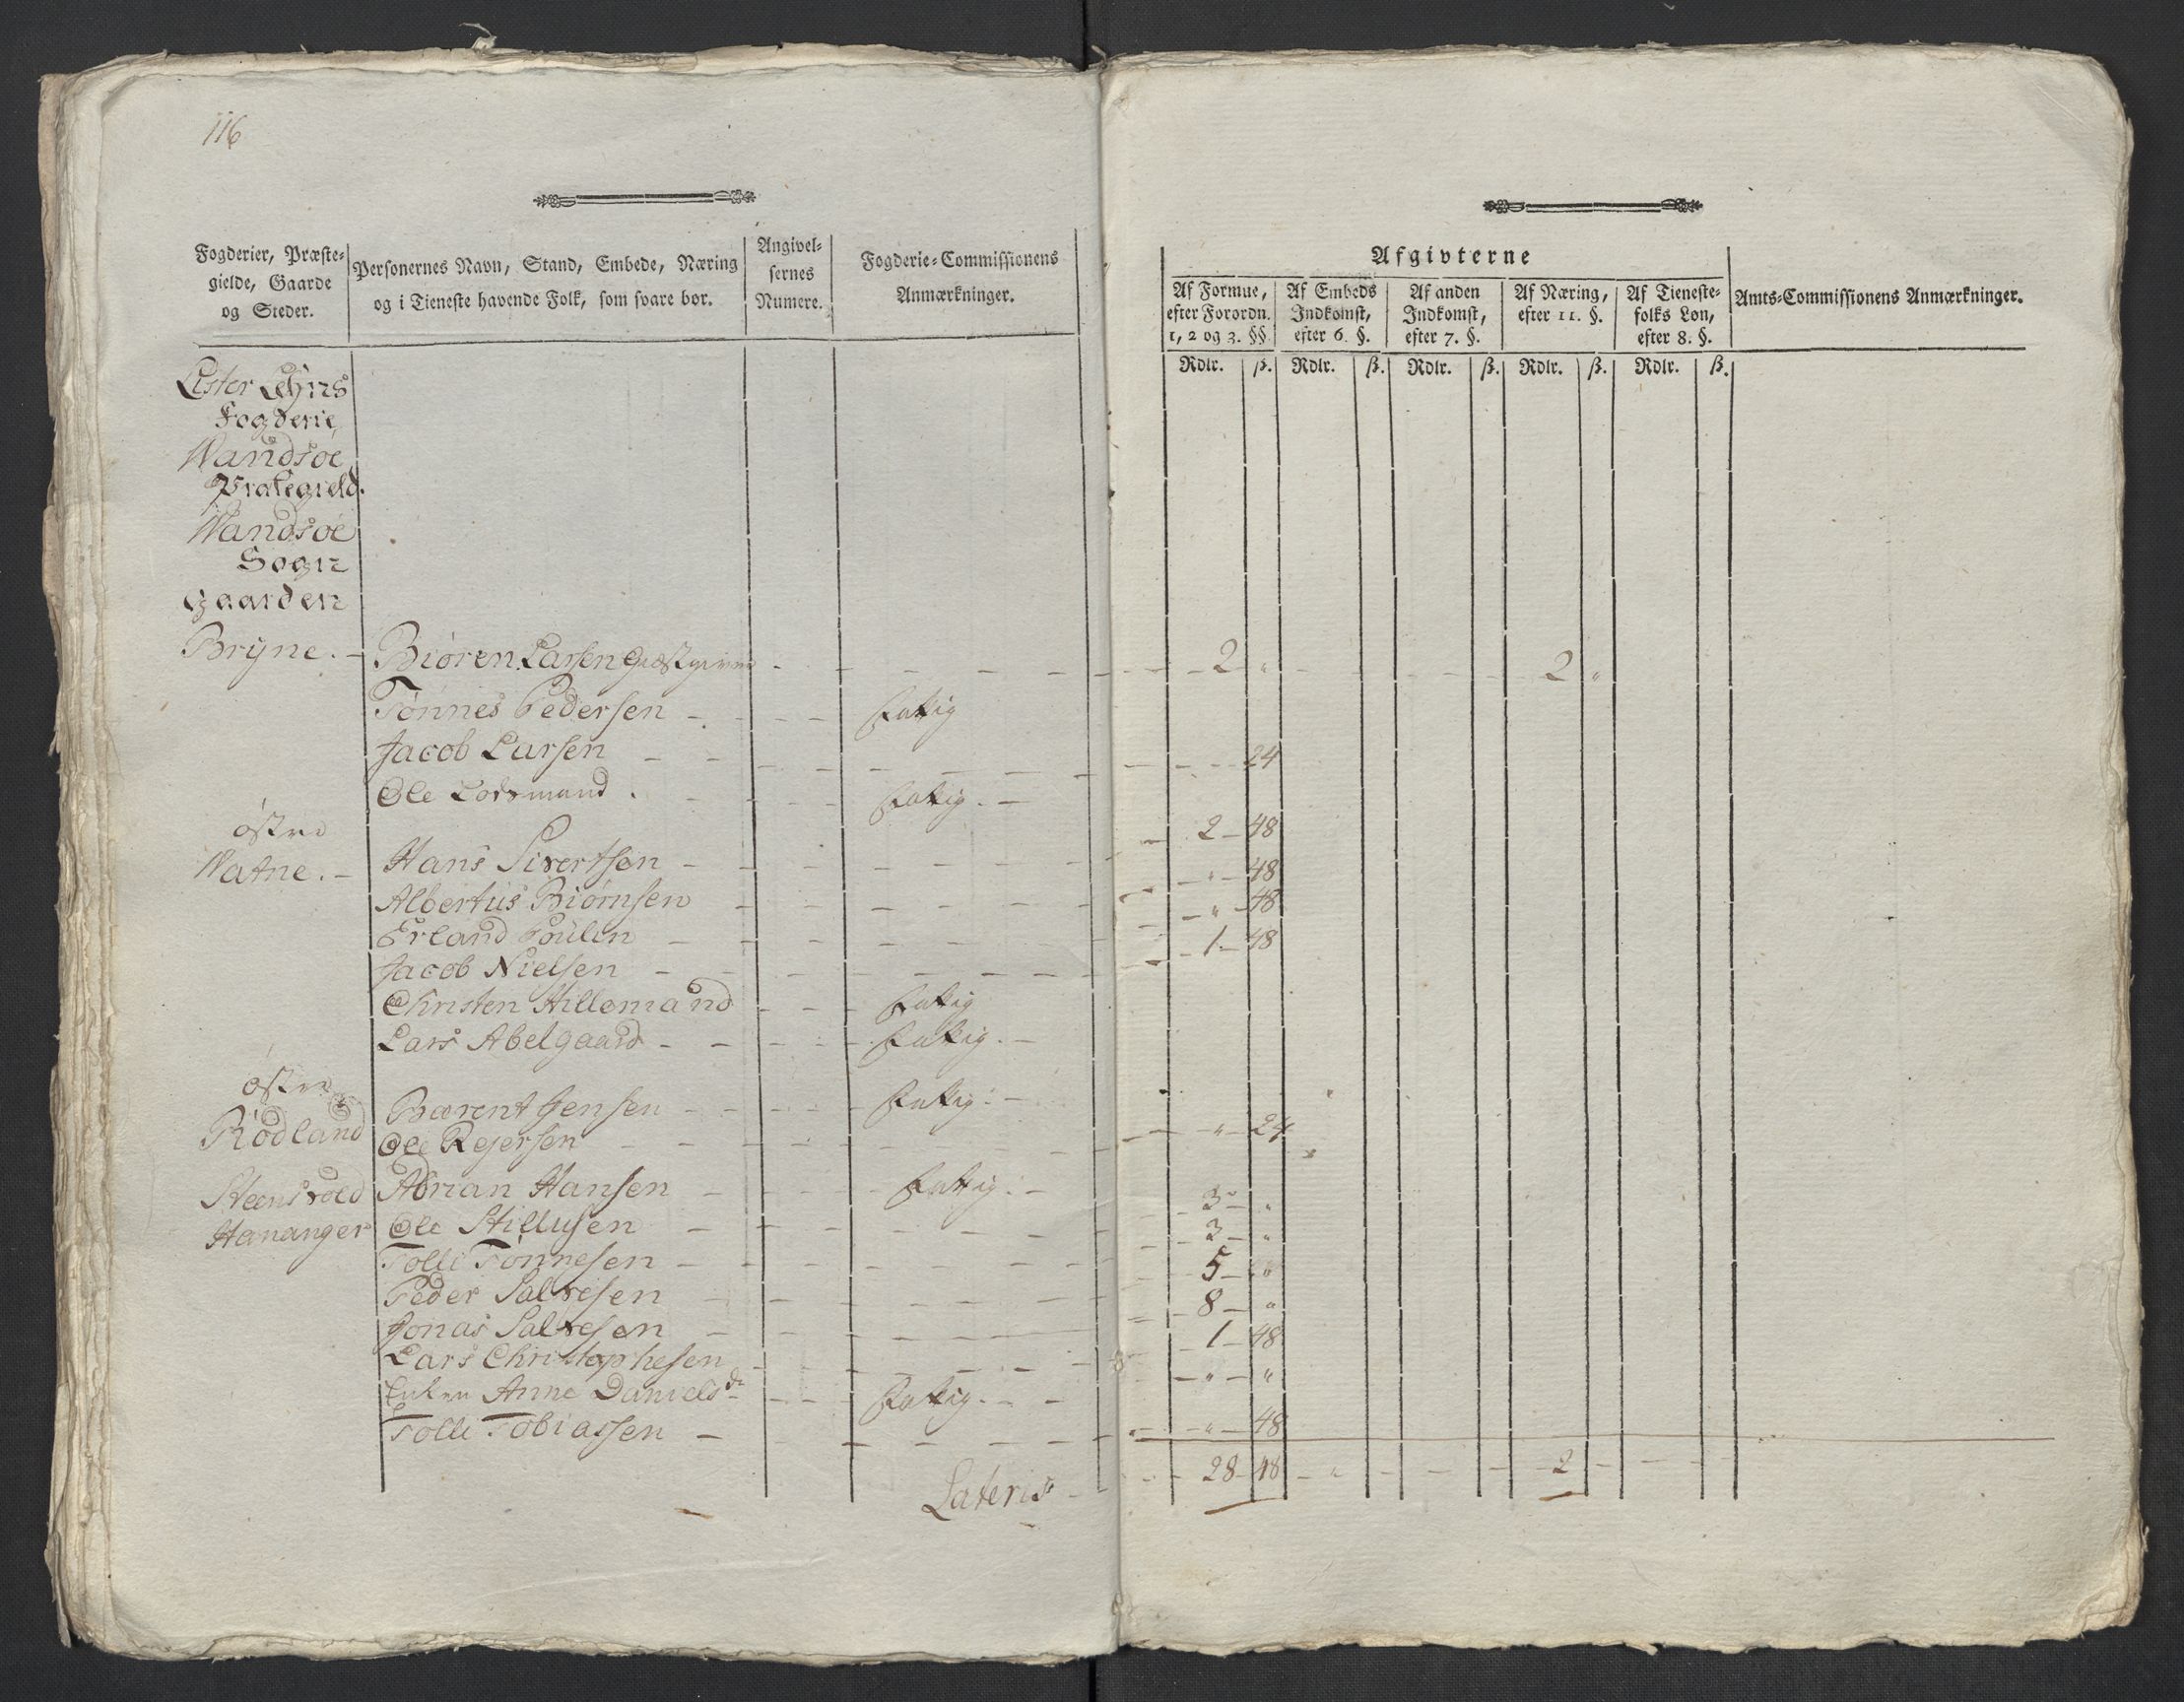 116
Fogderier, Præste-
gielde, Gaarde
og Steder.
Personernes Navn, Stand, Embede, Næring
og i Tieneste havende Folk, som svare bør.
Angivel-
sernes
Numere.
Fogderie-Commissionens
Anmærkninger.
Afgivterne
Af Formue,
efter Forordn.
1, 2 og 3. §§.
Af Embeds
Indkomst,
efter 6. §.
Af anden
Indkomst,
efter 7. §.
Af Næring,
efter 11. §.
Af Tieneste-
folks Løn,
efter 8. §.
Amts-Commissionens Anmærkninger.
Rdlr. ß. Rdlr. ß. Rdlr. ß. Rdlr. ß. Rdlr. ß.
Lister Lehns
Fogderie
Wandsøe
Wandsøe
Sogn
Gaarden
Bryne. - Biøren Larsen Giæstgiver - 2 " - 2 "
Tønnes Pedersen - Fattig
Jacob Larsen - 24
Ole - Fattig. -
østre 2 - 48
Watne. - Hans Sivertsen - " - 48
Albertus Biørnsen - " - 48
Erland Poulsen - 1 - 48
Jacob Nielsen -
Christen Hillemand - Fattig
Lars Abelgaard - Fattig. -
østre
Rødland Bærent Jensen - Fattig. -
Ole Rejersen - " - 24
Abrian Hansen - Fattig. -
Hananger Ole - 3 - "
Tolli Tønnesen - 3 - "
Peder Salvesen - 5 - "
Jonas Salvesen - 8 - "
Lars Christophesen - 1 - 48
Enken Anne Danielsdr - Fattig. - " - "
Tolli Tobiassen - " - 48
Lateris - 28 - 48 - " - 2 -